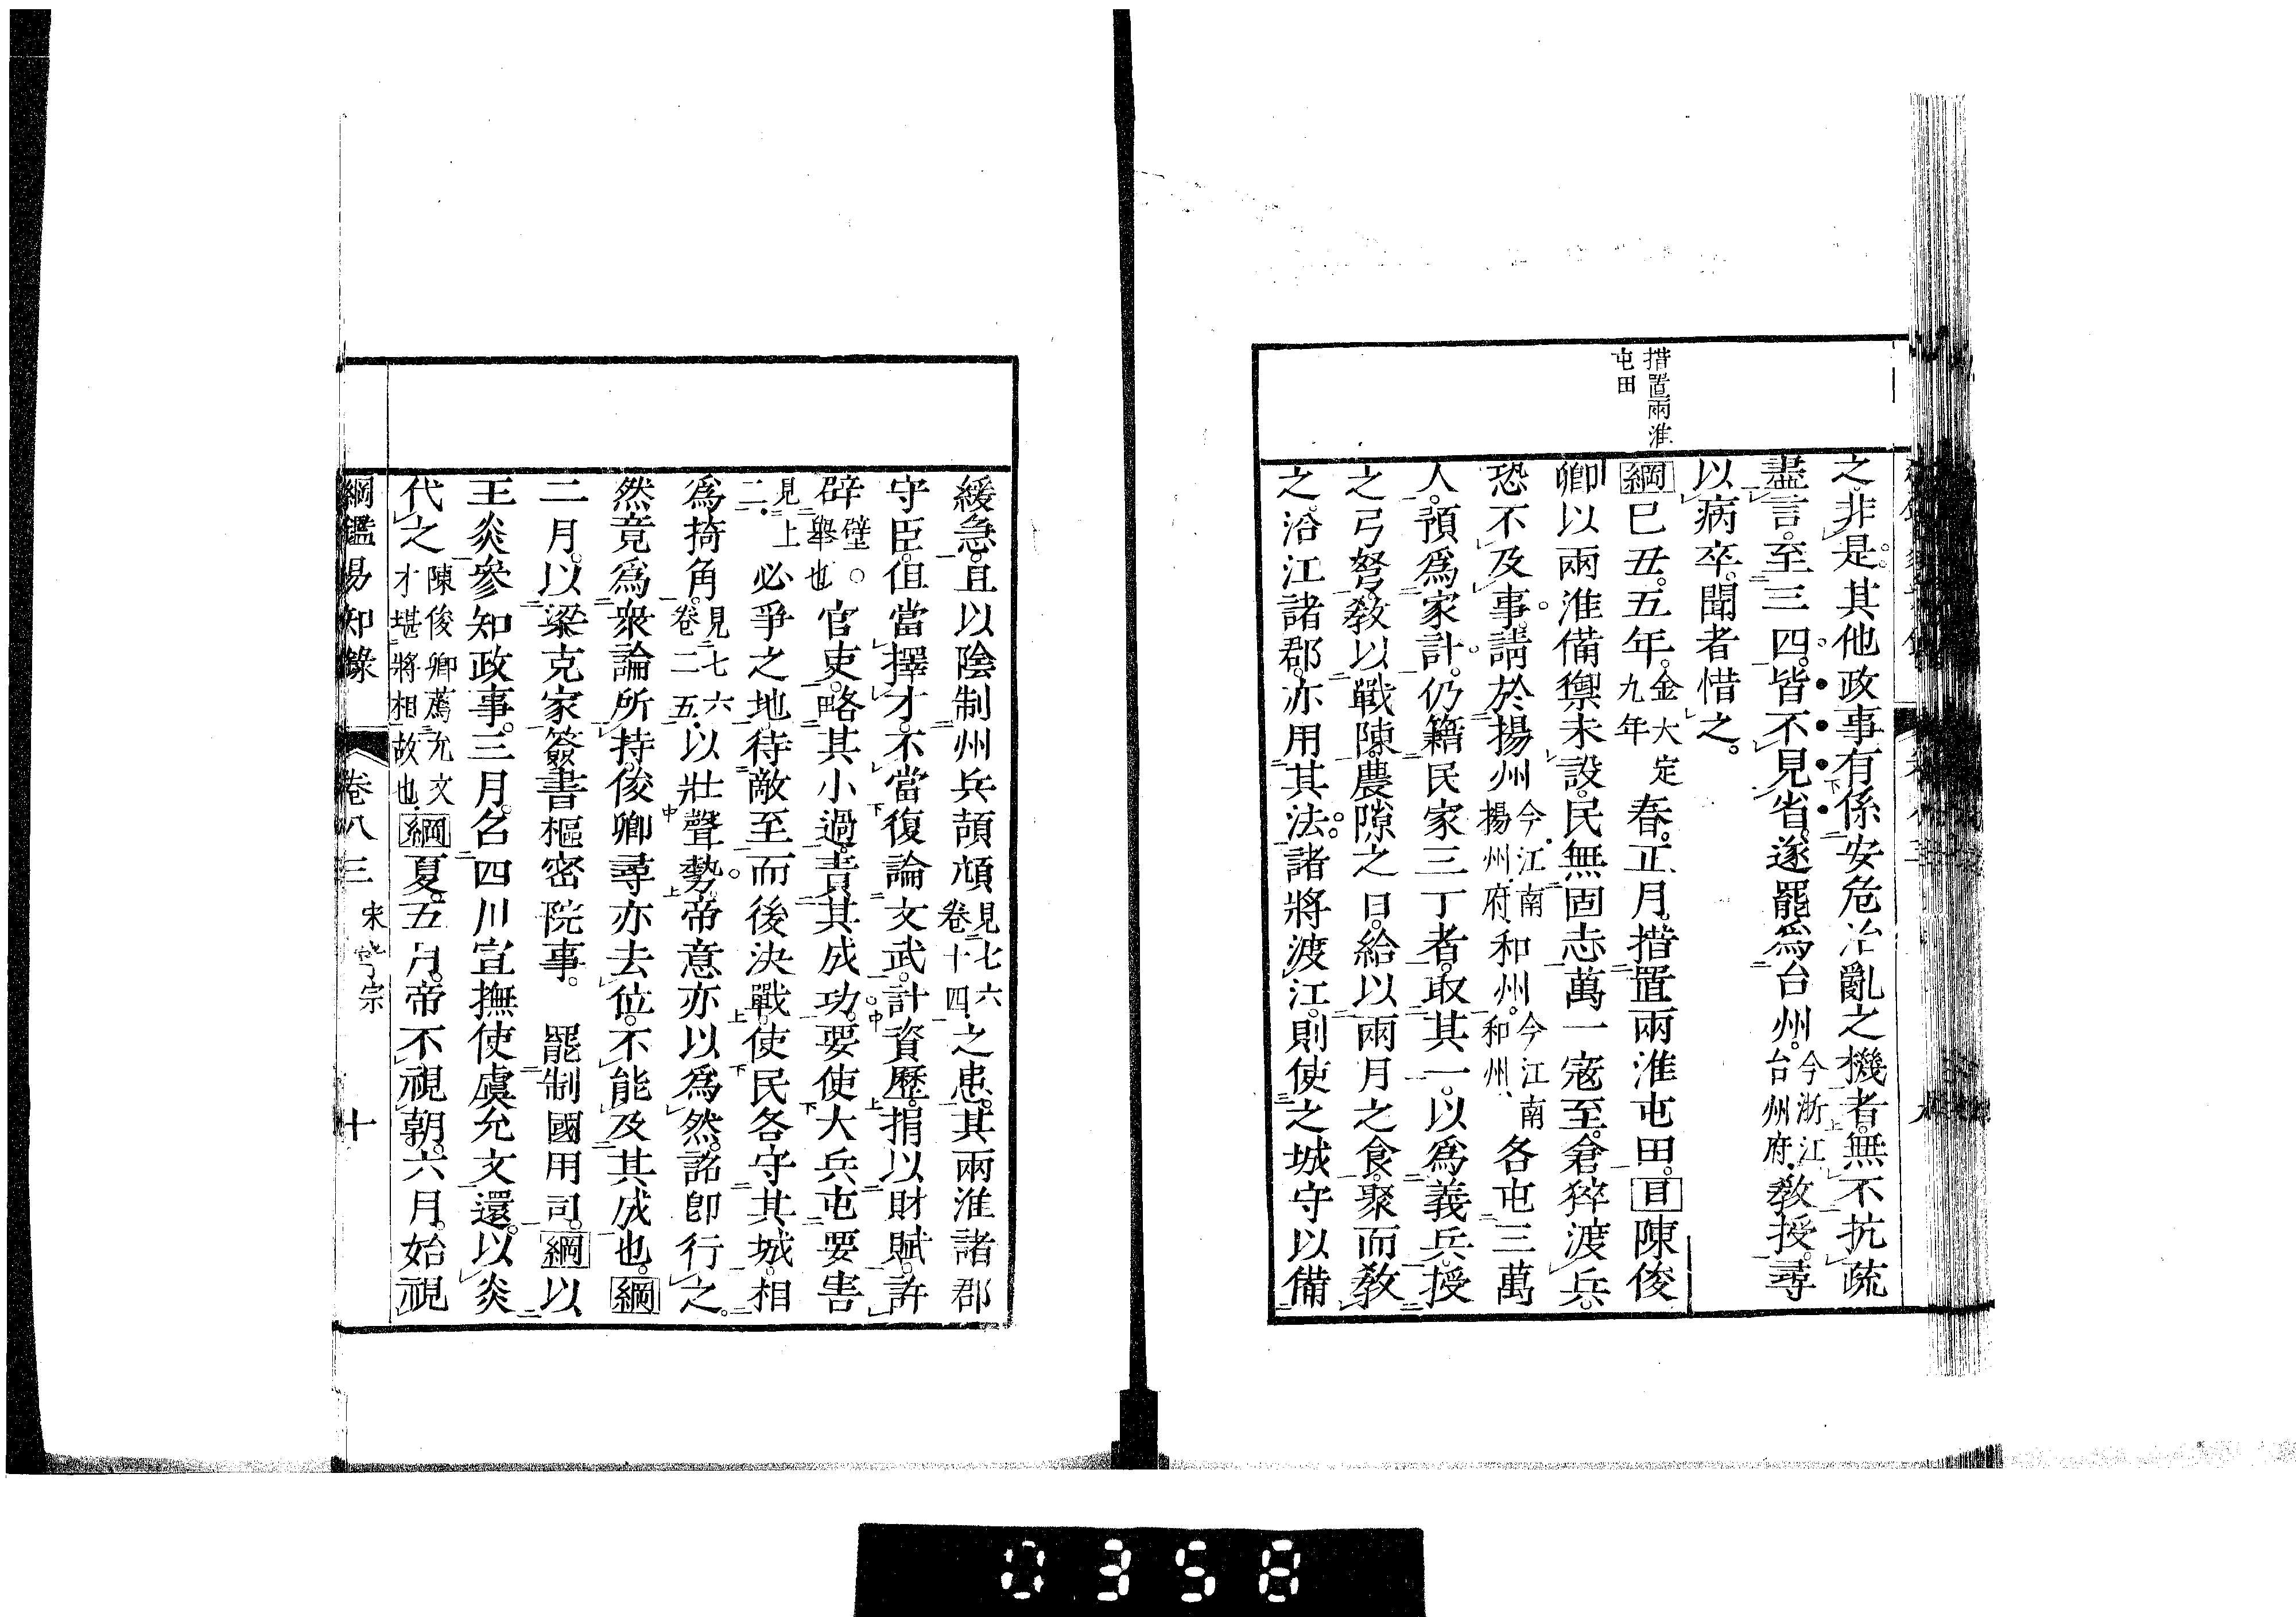 措置兩淮
屯田
之非是其他政事有係安危治亂之機者無不抗疏
盡言至三四皆不見省遂罷爲台州今浙江台州府教授尋
以病卒聞者惜之
綱己丑五年金大定九年春正月措置兩淮屯田目陳俊
卿以兩淮備禦未設民無固志萬一寇至倉猝渡兵
恐不及事請於揚州今江南揚州府和州今江南和州各屯三萬
人預爲家計仍籍民家三丁者取其一以爲義兵授
之弓弩教以戰陳農隙之日給以兩月之食聚而教
之沿江諸郡亦用其法諸將渡江則使之城守以備
緩急且以陰制州兵頡頏見七六卷十四之患其兩淮諸郡
守臣但當擇才不當復論文武計資歷捐以財賦許
辟璧○舉也官吏略其小過責其成功要使大兵屯要害
見上二必爭之地待敵至而後決戰使民各守其城相
爲掎角見七六卷二五以壯聲勢帝意亦以爲然詔卽行之
然竟爲衆論所持俊卿尋亦去位不能及其成也綱
二月以梁克家簽書樞密院事 罷制國用司綱以
王炎參知政事三月召四川宣撫使虞允文還以炎
代之陳俊卿薦允文才堪將相故也綱夏五月帝不視朝六月始視
綱鑑易知錄 卷八三 宋孝宗 十
0358